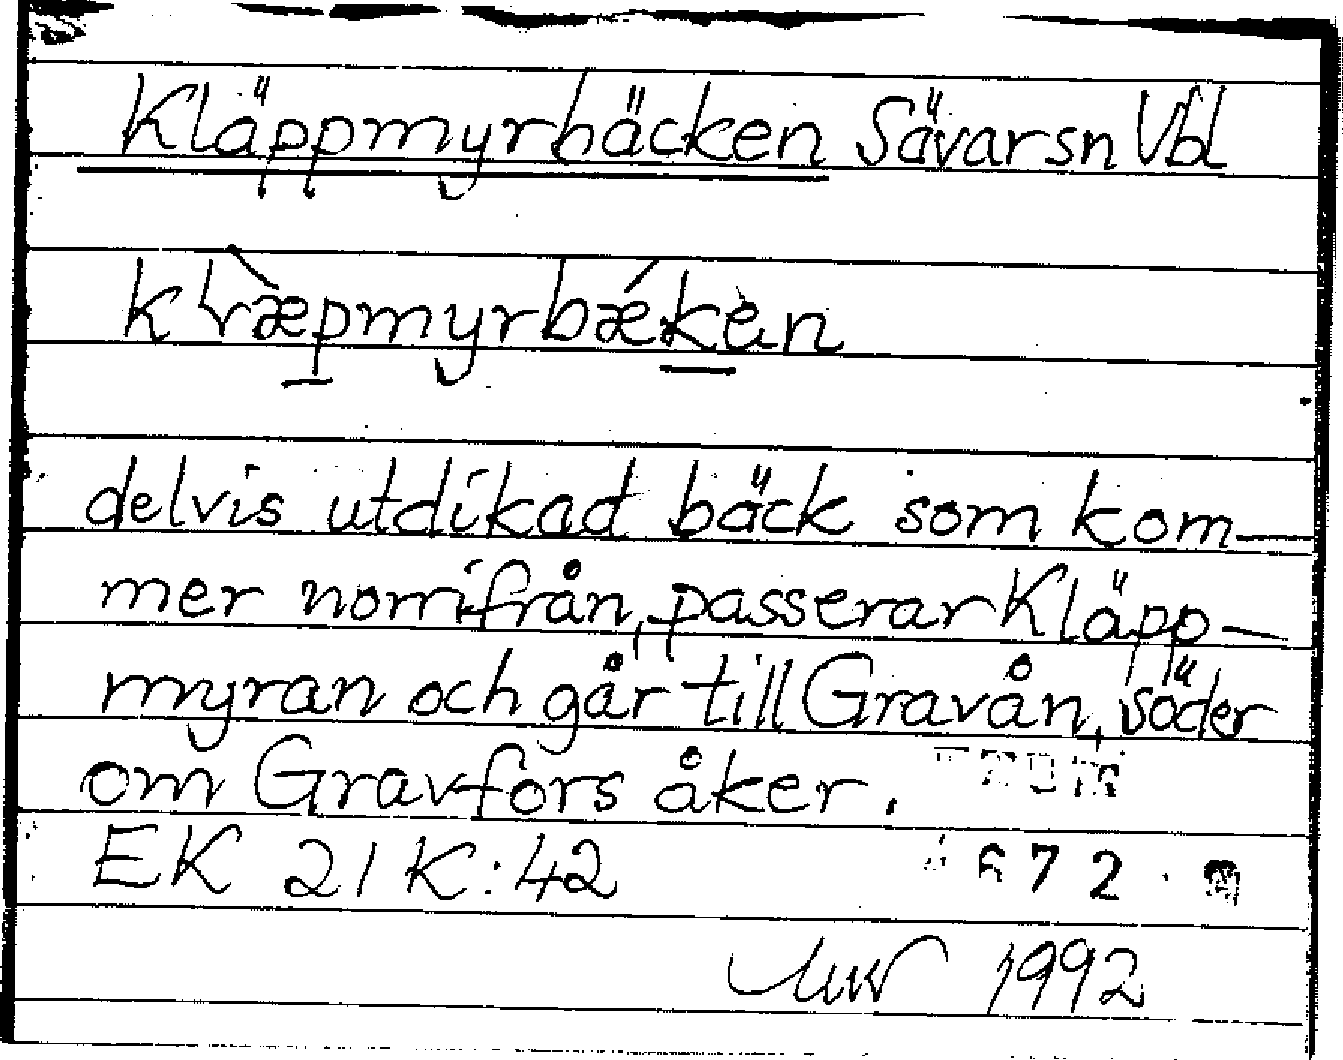 Kläppmyrbäcken Sävarsn Vbl
klræ̀pmyrbǽken
delvis utdikad bäck som kom-
mer norrifrån, passerar Kläpp-
myran och går till Gravån, söder
om Gravfors åker.
EK 21 K:42
672
1992